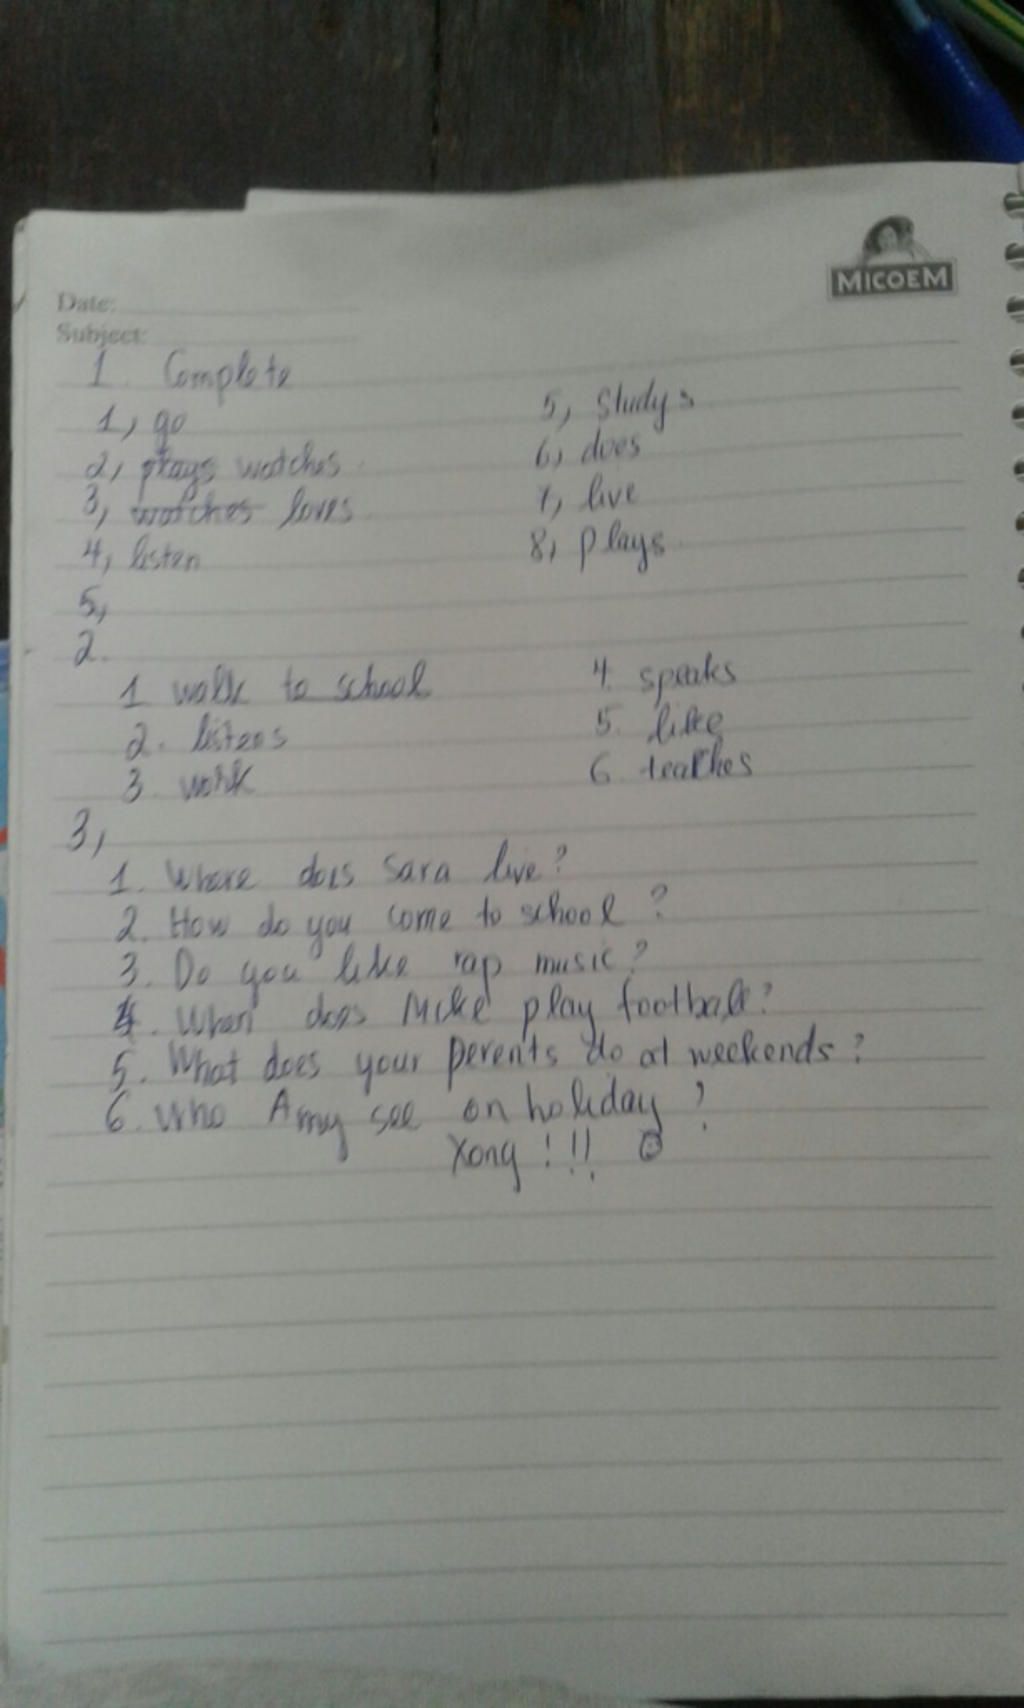 MICOEM
Date:
Subject:
1. Complete
1, go
2, plays watches
3, watches loves
4, listen
5,
5, studys
6, does
7, live
8, plays
2.
1 walk to school
2. listens
3. work
4. speaks
5. like
6. teaches
3,
1. Where does Sara live?
2. How do you come to school?
3. Do you like rap music?
4. When does Mike play football?
5. What does your perents do at weekends?
6. Who Amy see on holiday?
Xong!!!